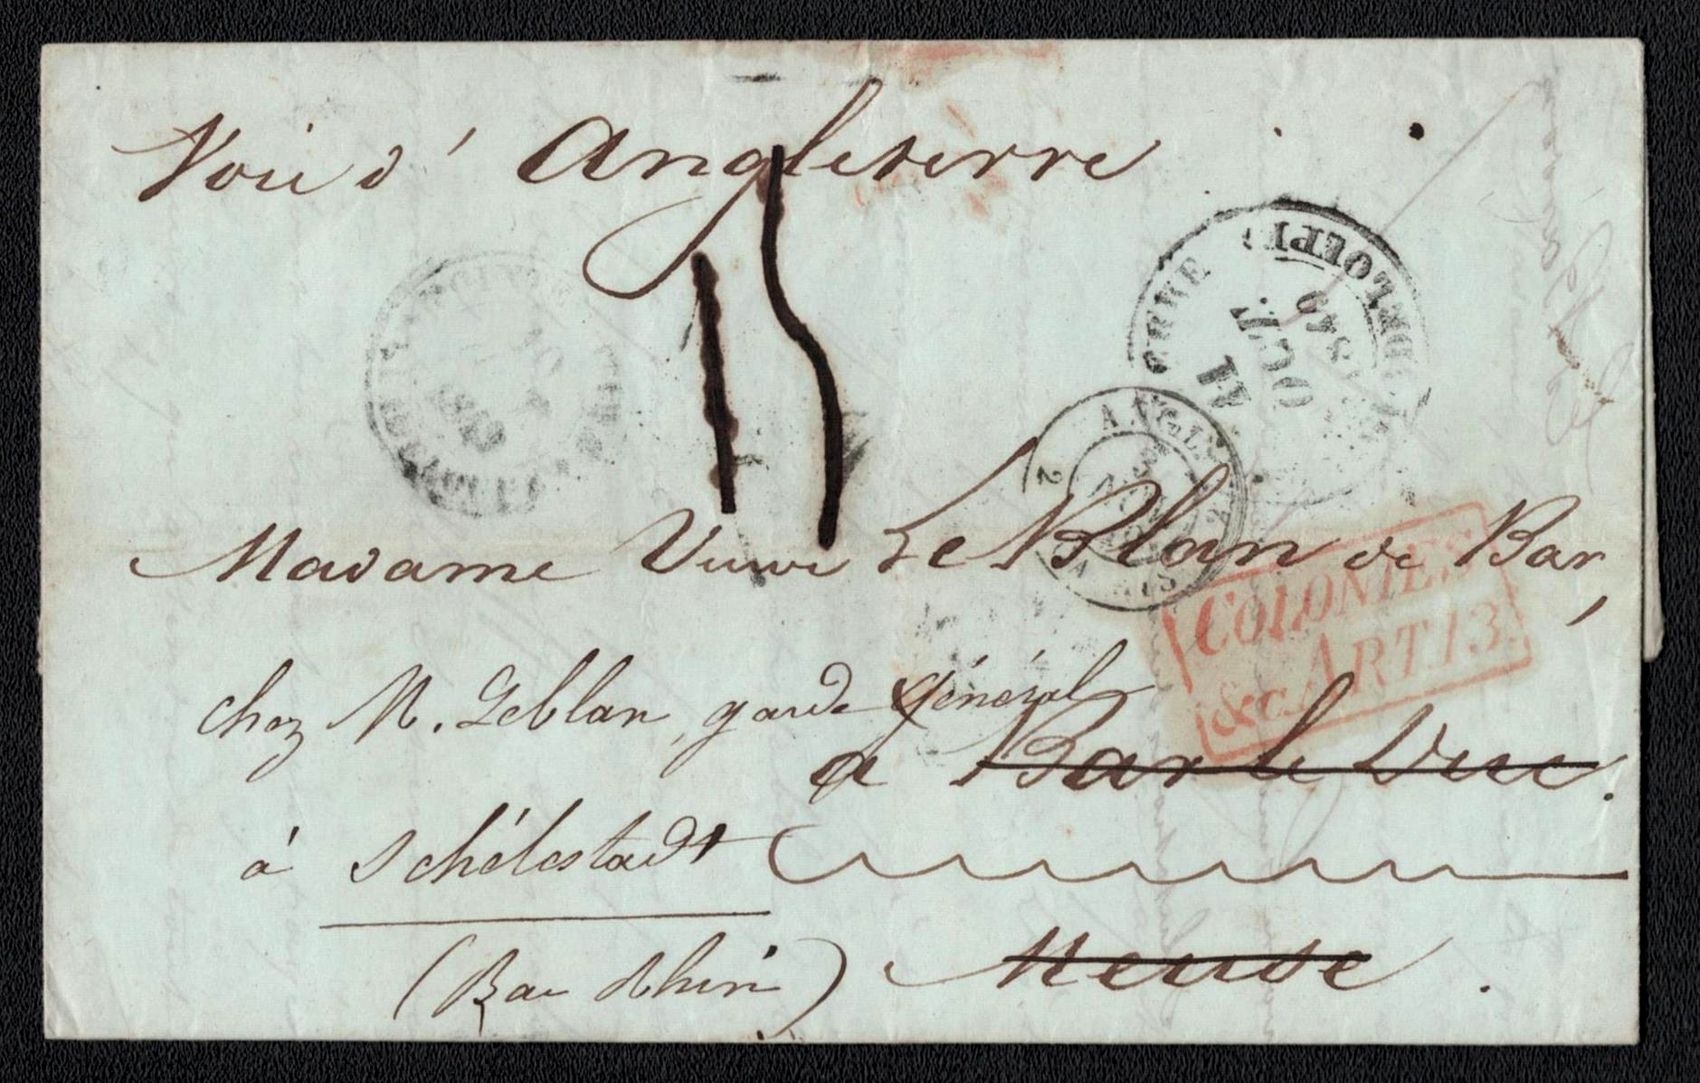 Voie d' Angleterre
15
11 OCT. 1849
ANGL.
2 2
COLONIES
&c. ART 13.
Madame Veuve Le Blan de Bar,
chez M. Leblan, garde général
a Bar le Duc.
à Schélestadt
(Bas Rhin) Meuse.